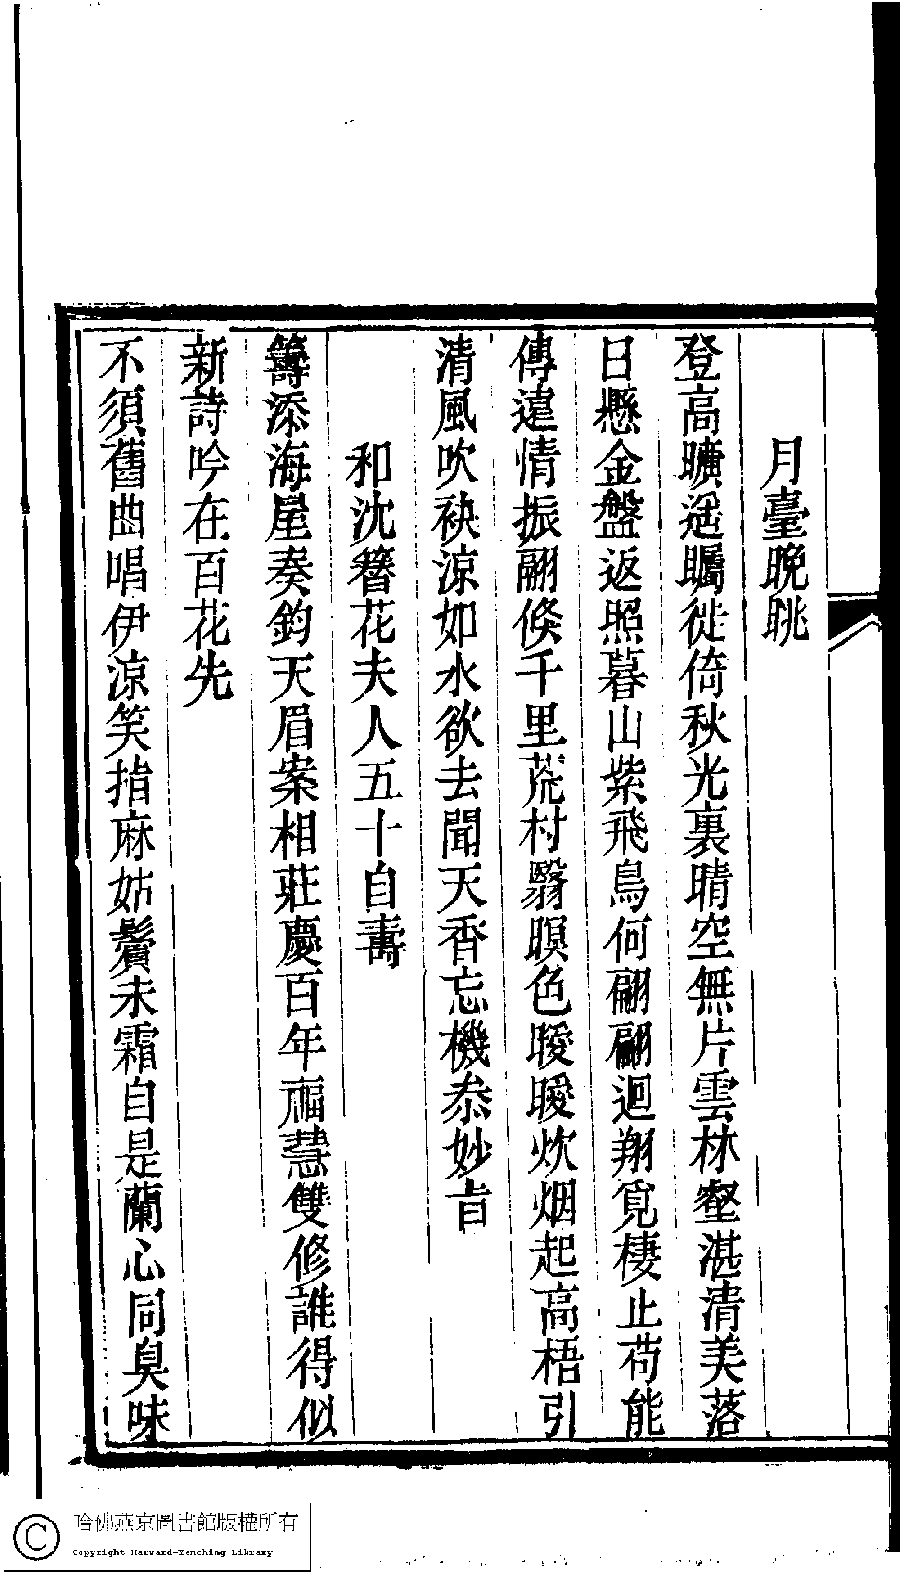 月臺晚眺
登高曠遥矚徙倚秋光裏晴空無片雲林壑湛清美落
日懸金盤返照暮山紫飛鳥何翩翩迴翔覓棲止苟能
傳遠情振翮倏千里荒村翳暝色曖曖炊烟起高梧引
清風吹袂涼如水欲去聞天香忘機叅妙旨
和沈簪花夫人五十自壽
籌添海屋奏鈞天眉案相莊慶百年福慧雙修誰得似
新詩吟在百花先
不須舊曲唱伊涼笑指麻姑鬢未霜自是蘭心同臭味
哈佛燕京圖書館版權所有
Copyright Harvard-Yenching Library